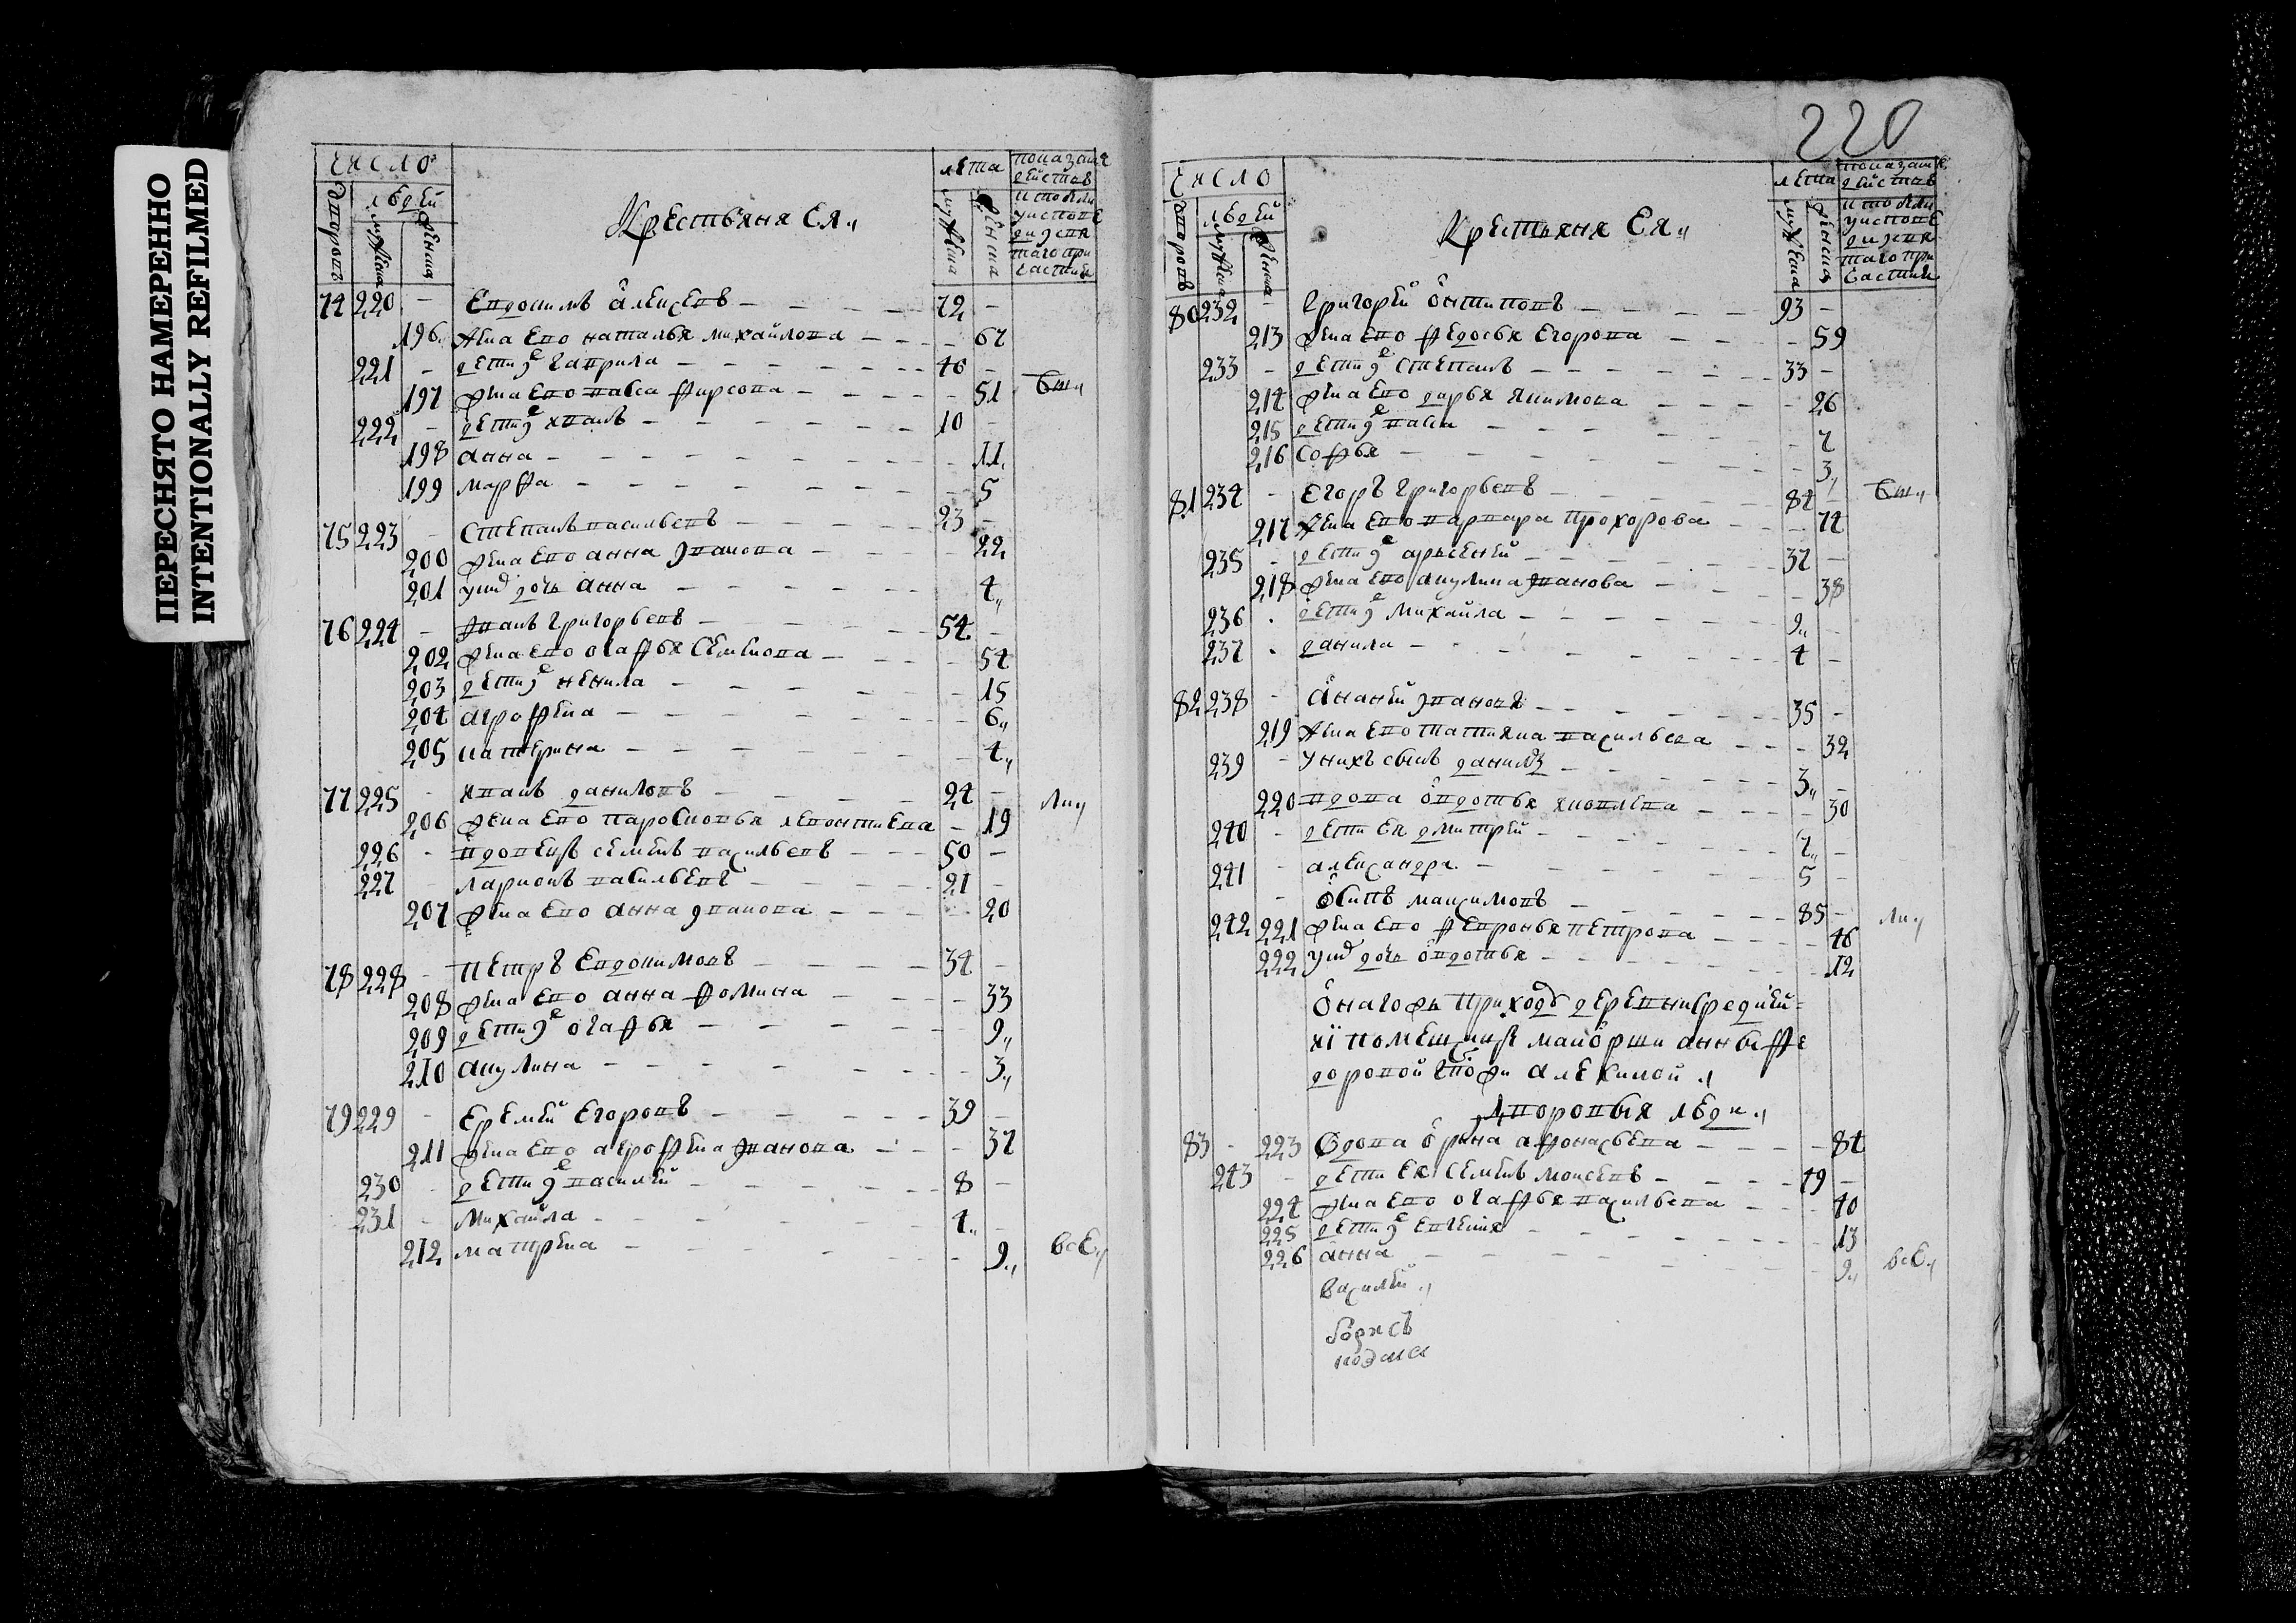 ПЕРЕСНЯТО НАМЕРЕННО
INTENTIONALLY REFILMED
число
дворовъ
людей
мужеска
женска
Крестьяня Ея
лета
мужеска
женска
74 220 - Евдокимъ Алексевъ - 72 -
196 жена ево наталья михайлова - 67
221 - дети ихъ гаврила - 40 -
197 жена ево васа фирсова - 51
222 - дети ихъ иванъ - 10 -
198 анна - 11
199 марфа - 5
75 223 - Степанъ васильевъ - 23 -
200 жена ево анна иванова - 22
201 у них дочь анна - 4
76 224 - иванъ григорьевъ - 54 -
202 жена ево огафья семенова - 54
203 дети ихъ ненила - 15
204 агрофена - 6
205 катерина - 4
77 225 - иванъ даниловъ - 24 -
206 жена ево парасковья леонтиева - 19
226 - вдовецъ семенъ васильевъ - 50 -
227 - ларионъ васильевъ - 21 -
207 жена ево анна иванова - 20
78 228 - петръ Евдокимовъ - 34 -
208 жена ево анна фомина - 33
209 дети ихъ огафья - 9
210 акулина - 3
79 229 - Еремей Егоровъ - 39 -
211 жена ево агрофена иванова - 37
230 - дети ихъ василей - 8 -
231 - михайла - 4
212 матрена - 9 всѣ
220
число
дворовъ
людей
мужеска
женска
Крестьяня Ея
лета
мужеска
женска
80 232 - григорей онтиповъ - 93 -
213 жена ево федосья Егорова - 59
233 - дети ихъ степанъ - 33 -
214 жена ево дарья якимова - 26
215 дети ихъ васа - 7
216 софья - 3
81 234 - Егоръ григорьевъ - 84 -
217 жена ево варвара прохорова - 74
235 - дети ихъ арьсеней - 37 -
218 жена ево акулина иванова - 38
236 - дети ихъ михайла - 9 -
237 - данила - 4 -
82 238 - ананей ивановъ - 35 -
219 жена ево татияна васильева - 32
239 - у нихъ сынъ данила - 3 -
220 вдова овдотья яковлева - 30
240 - дети ея дмитрей - 7 -
241 - александра - 5 -
- осипъ максимовъ - 85 -
242 221 жена ево февронья петрова - 46
222 у них дочь овдотья - 12
онагожъ приходу деревни средней
помещицы майорши анны фе
доровой алехиной
Дворовыя люди
83 - 223 вдова орина афонасьева - 84
243 - дети ея семенъ моисеевъ - 49 -
224 жена ево огафья васильева - 40
225 дети ихъ евгения - 13
226 анна - 9 всѣ
василей
борисъ
козма